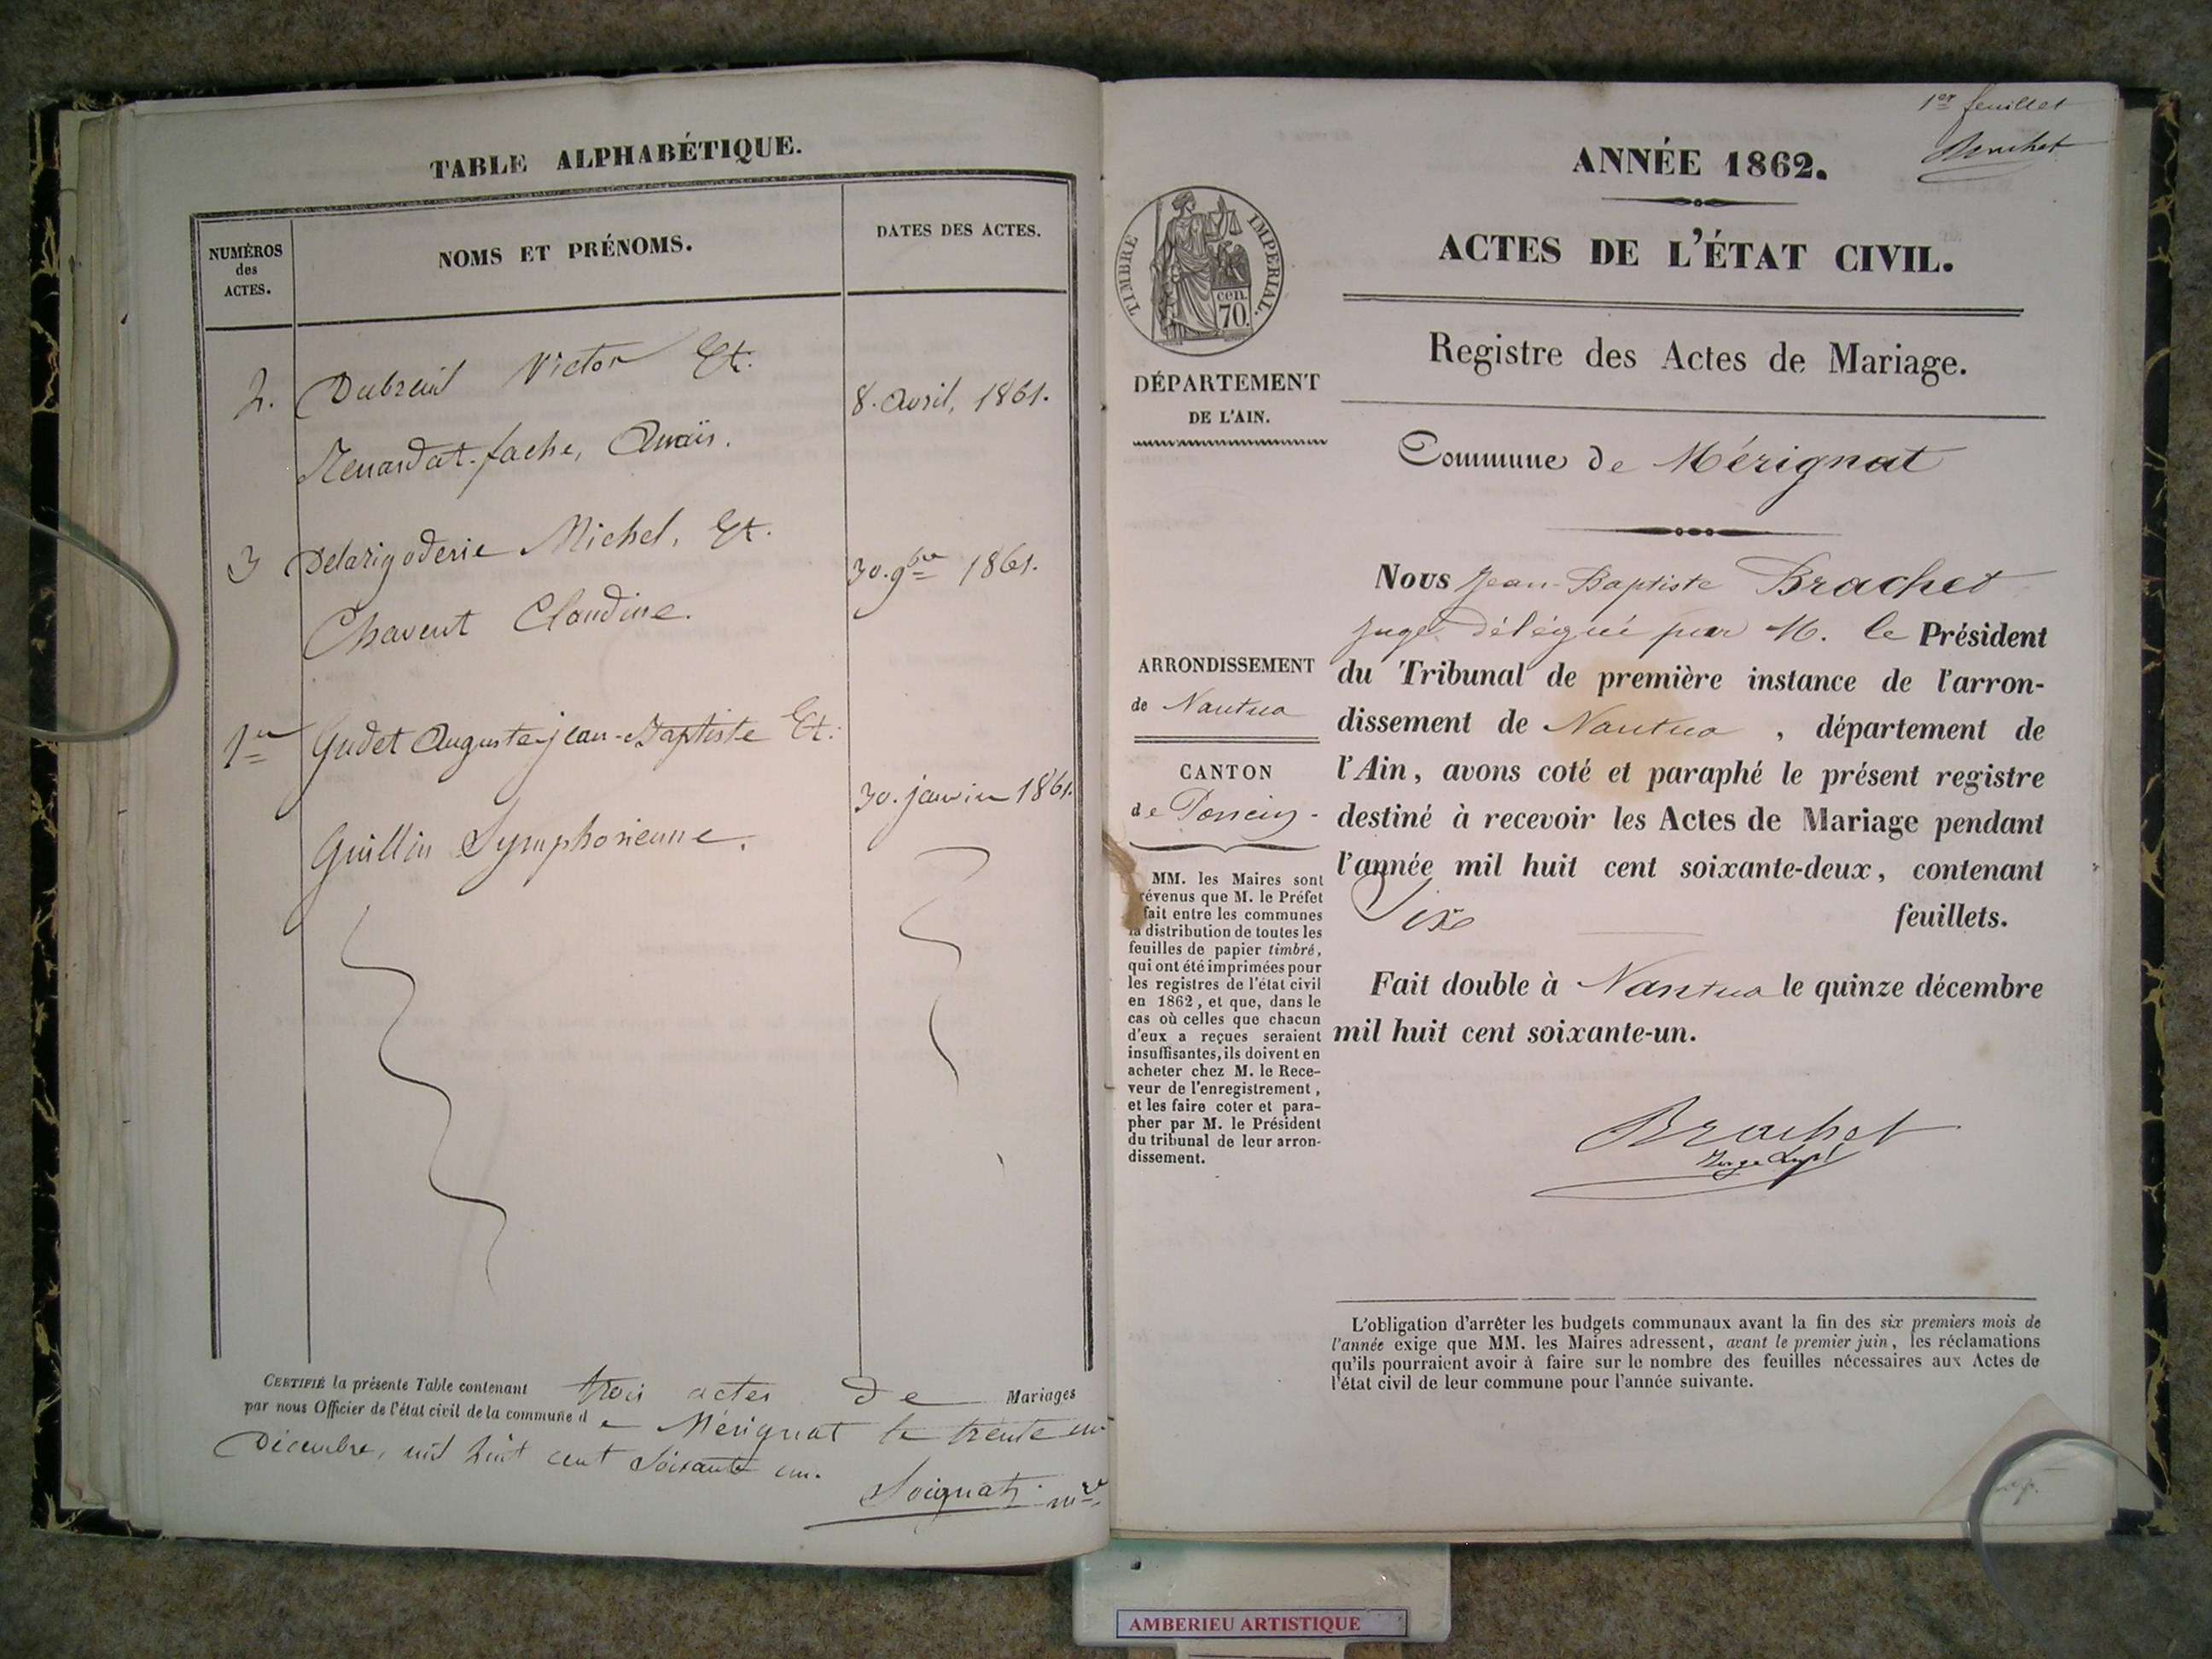 TABLE ALPHABÉTIQUE.
NUMÉROS
des
ACTES.
NOMS ET PRÉNOMS.
DATES DES ACTES.
2. Dubreuil Victor Et.
8. Avril, 1861.
Renardat-fache, Anaïs.
3 Delarigoderie Michel, Et.
30. 9bre 1861.
Chavent Claudine.
1er Gudet Auguste jean-Baptiste Et.
30. janvier 1861.
Guillin Symphorienne.
CERTIFIÉ la présente Table contenant trois actes de Mariages
par nous Officier de l'état civil de la commune de Mérignat le trente un
Décembre, mil huit cent soixante un.
Soignat mre
1er feuillet
Brachet
ANNÉE 1862.
ACTES DE L'ÉTAT CIVIL.
Registre des Actes de Mariage.
Commune de Mérignat
TIMBRE IMPÉRIAL.
cen.
70.
DÉPARTEMENT
DE L'AIN.
ARRONDISSEMENT
de Nantua
CANTON
de Poncin
MM. les Maires sont
révenus que M. le Préfet
fait entre les communes
la distribution de toutes les
feuilles de papier timbré,
qui ont été imprimées pour
les registres de l'état civil
en 1862, et que, dans le
cas où celles que chacun
d'eux a reçues seraient
insuffisantes, ils doivent en
acheter chez M. le Rece-
veur de l'enregistrement,
et les faire coter et para-
pher par M. le Président
du tribunal de leur arron-
dissement.
Nous Jean-Baptiste Brachet
juge délégué par M. le Président
du Tribunal de première instance de l'arron-
dissement de Nantua, département de
l'Ain, avons coté et paraphé le présent registre
destiné à recevoir les Actes de Mariage pendant
l'année mil huit cent soixante-deux, contenant
Six feuillets.
Fait double à Nantua le quinze décembre
mil huit cent soixante-un.
Brachet
Juge
L'obligation d'arrêter les budgets communaux avant la fin des six premiers mois de
l'année exige que MM. les Maires adressent, avant le premier juin, les réclamations
qu'ils pourraient avoir à faire sur le nombre des feuilles nécessaires aux Actes de
l'état civil de leur commune pour l'année suivante.
AMBERIEU ARTISTIQUE